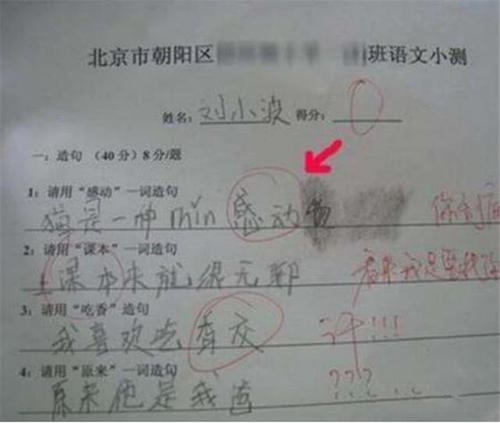 北京市朝阳区 班语文小测
姓名:刘小波 得分: 0
一:造句 (40分)8分/题
1:请用“感动”一词造句
猫是一种min感动物
你到底
2:请用“课本”一词造句
上课本来就很无聊
看来我是
3:请用“吃香”造句
我喜欢吃香交
汗!!!
4:请用“原来”一词造句
原来他是我爸
???...